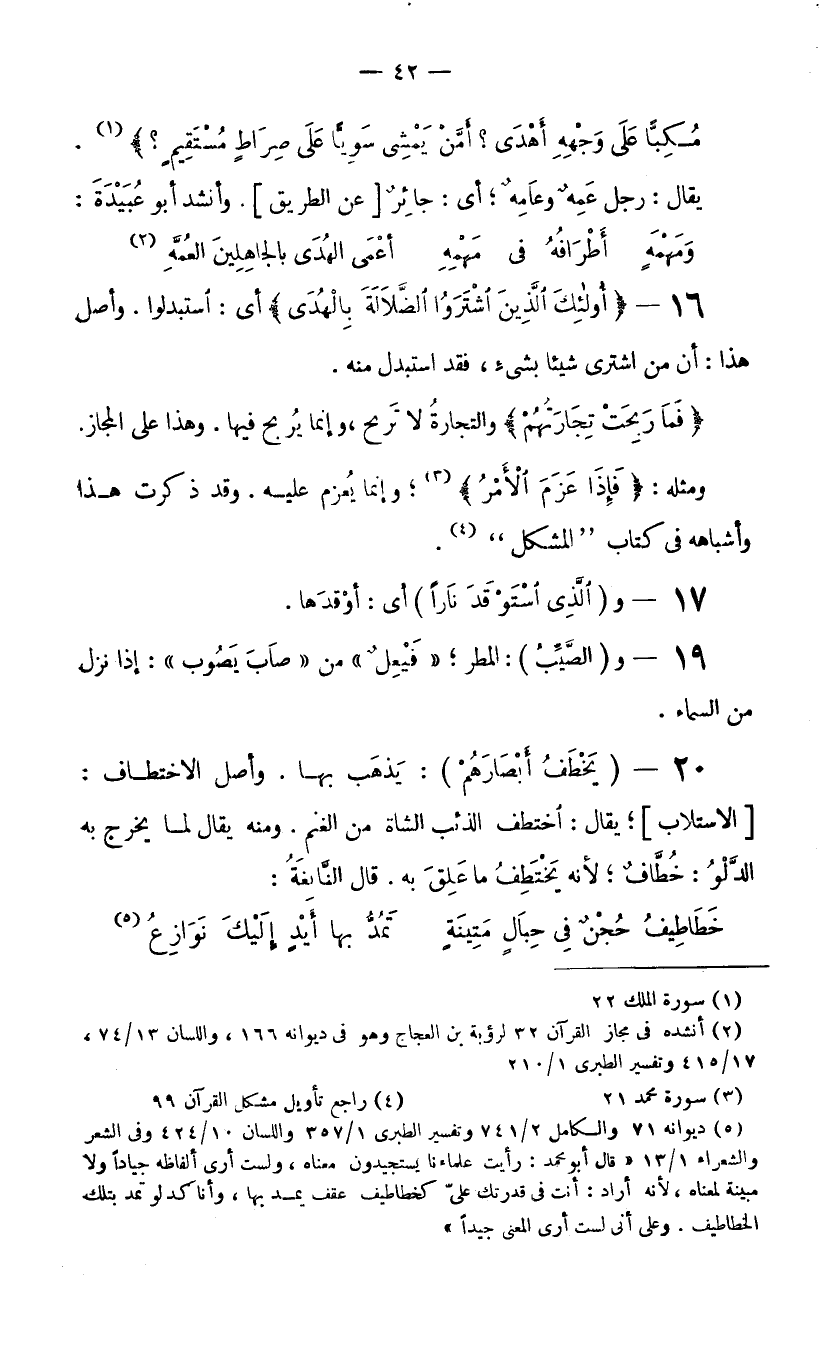 — ٤٢ —
مُـكِبًّا عَلَى وَجْهِهِ أَهْدَى ؟ أَمَّنْ يَمْشِى سَوِيًّا عَلَى صِرَاطٍ مُسْتَقِيمٍ ؟ ﴾ (١) .
يقال : رجل عَمِهٌ وعَامِهٌ ؛ أى : جائِرٌ [ عن الطريق ] . وأنشد أبو عُبَيْدَةَ :
وَمَهْمَهٍ أَطْرَافُهُ فى مَهْمِهِ أعْمَى الهُدَى بالجاهِلِينَ العُمَّهِ (٢)
١٦ — ﴿ أُولَٰئِكَ ٱلَّذِينَ ٱشْتَرَوُا ٱلضَّلَالَةَ بِالْهُدَى ﴾ أى : ٱستبدلوا . وأصل
هذا : أن من اشترى شيئا بشىء ، فقد استبدل منه .
﴿ فَمَا رَبِحَتْ تِجَارَتُهُمْ ﴾ والتجارةُ لا تَربح ، وإنما يُربح فيها . وهذا على المجاز.
ومثله : ﴿ فَإِذَا عَزَمَ ٱلْأَمْرُ ﴾ (٣) ؛ وإنما يُعزم عليـه . وقد ذكرت هـذا
وأشباهه فى كتاب ’’المشكل‘‘ (٤) .
١٧ — و ( ٱلَّذِى ٱسْتَوْقَدَ نَاراً ) أى : أوْقدَها .
١٩ — و ( الصَّيِّبُ ) : المطر ؛ « فَيْعِلٌ » من « صابَ يَصُوب » : إذا نزل
من السماء .
٢٠ — ( يَخْطَفُ أَبْصَارَهُمْ ) : يَذهَب بهـا . وأصل الاختطـاف :
[ الاستلاب ] ؛ يقال : ٱختطف الذئب الشاة من الغنم . ومنه يقال لمـا يخرج به
الدَّلْوُ : خُطَّافٌ ؛ لأنه يَخْتَطِفُ ما عَلِقَ به . قال النَّابِغَةُ :
خَطَاطِيفُ حُجْنٌ فِى حِبَالٍ مَتِينَةٍ تَمُدُّ بها أَيْدٍ إِلَيْكَ نَوَازِعُ (٥)
(١) سورة الملك ٢٢
(٢) أنشده فى مجاز القرآن ٣٢ لرؤبة بن العجاج وهو فى ديوانه ١٦٦ ، واللسان ٧٤/١٣ ،
٤١٥/١٧ وتفسير الطبرى ٢١٠/١
(٣) سورة محمد ٢١ (٤) راجع تأويل مشكل القرآن ٩٩
(٥) ديوانه ٧١ والـكامل ٧٤١/٢ وتفسير الطبرى ٣٥٧/١ واللسان ٤٢٤/١٠ وفى الشعر
والشعراء ١٣/١ « قال أبو محمد : رأيت علماءنا يستجيدون معناه ، ولست أرى ألفاظه جياداً ولا
مبينة لمعناه ، لأنه أراد : أنت فى قدرتك علىّ كخطاطيف عقف يمـد بها ، وأنا كدلو تمد بتلك
الخطاطيف . وعلى أنى لست أرى المعنى جيداً »